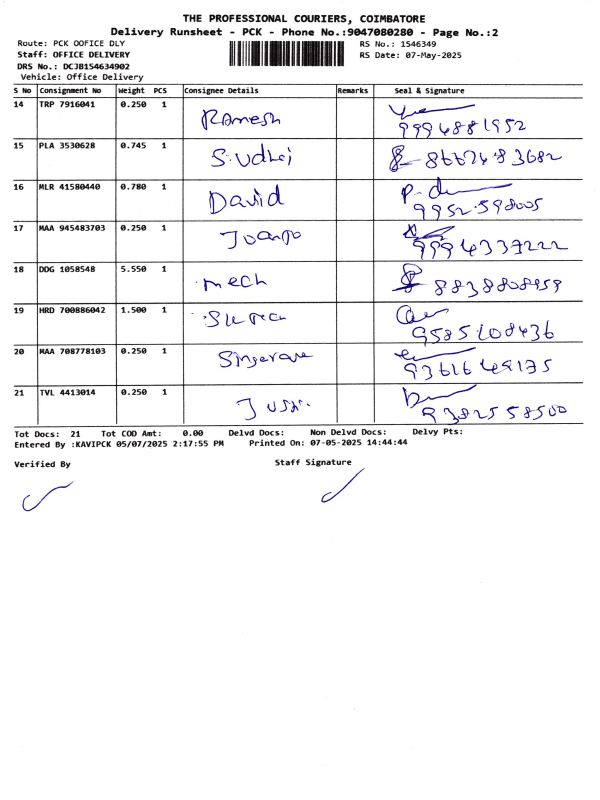 THE PROFESSIONAL COURIERS, COIMBATORE
Delivery Runsheet - PCK - Phone No.:9047080280 - Page No.:2
Route: PCK OOFICE DLY
RS No.: 1546349
Staff: OFFICE DELIVERY
RS Date: 07-May-2025
DRS No.: DCJB154634902
Vehicle: Office Delivery
S No Consignment No Weight PCS Consignee Details Remarks Seal & Signature
14 TRP 7916041 0.250 1 Ramesh
9994881952
15 PLA 3530628 0.745 1 S.udhei 8667483682
16 MLR 41580440 0.780 1 David
9952.598005
17 MAA 945483703 0.250 1
9994337222
18 DDG 1058548 5.550 1 mech 8838808959
19 HRD 700886042 1.500 1
9585108436
20 MAA 708778103 0.250 1
9361649175
21 TVL 4413014 0.250 1
9382558500
Tot Docs: 21 Tot COD Amt: 0.00 Delvd Docs: Non Delvd Docs: Delvy Pts:
Entered By :KAVIPCK 05/07/2025 2:17:55 PM Printed On: 07-05-2025 14:44:44
Verified By
Staff Signature